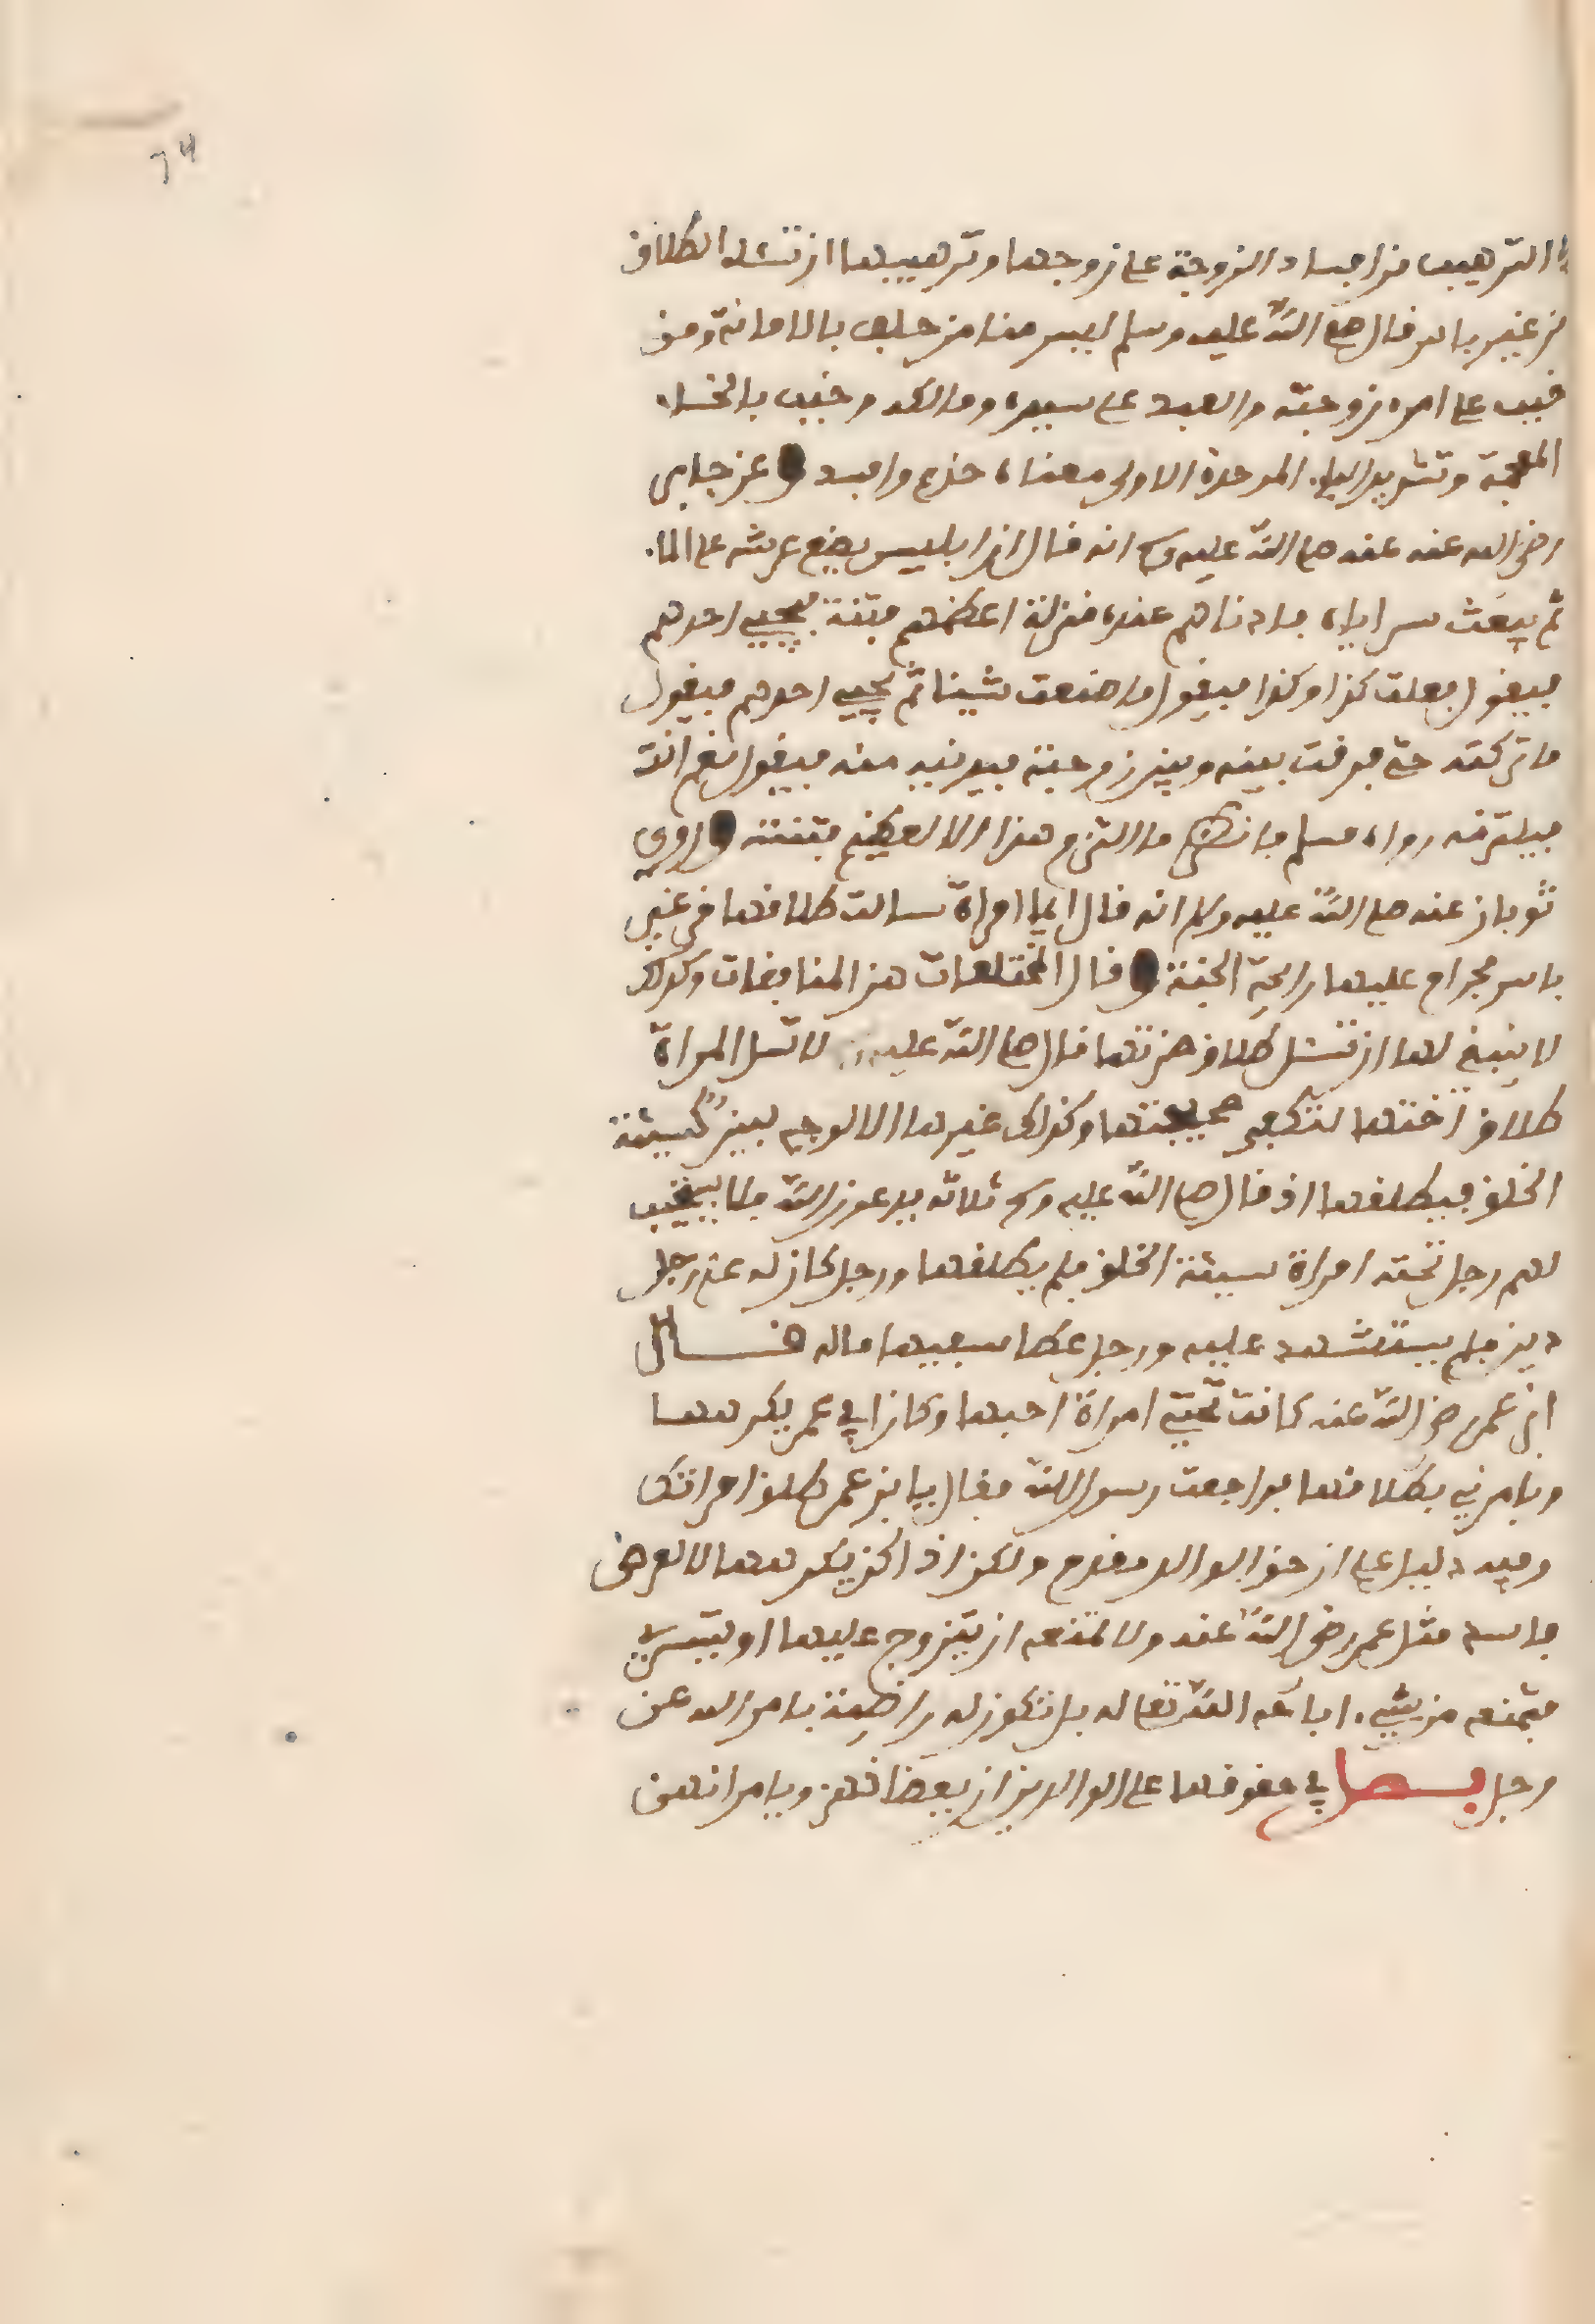 ٦٤
الترهيب من افساد الزوجة على زوجها وترهيبها ان تسئل الطلاق
من غير باس قال صلى الله عليه وسلم ليس منا من حلف بالامانة ومن
خبب على امرء زوجته والعبد على سيده ومالكه وخبب بالخاء
المعجمة وتشديد الباء الموحدة الاولى معناه خدع وافسد وعن جابر
رضي الله عنه عنه صلى الله عليه وسلم انه قال ان ابليس يضع عرشه على الماء
ثم يبعث سراياه فادناهم عنده منزلة اعظمهم فتنة يجيي احدهم
فيقول فعلت كذا وكذا فيقول ما صنعت شيئا ثم يجيي احدهم فيقول
ما تركته حتى فرقت بينه وبين زوجته فيدنيه منه فيقول نعم انت
فيلتزمه رواه مسلم فانظر ما التزم هذا الا لعظيم فتنته وروي
ثوبان عنه صلى الله عليه وسلم انه قال ايما امراة سالت طلاقها من غير
باس فحرام عليها رايحة الجنة وقال المختلعات هن المنافقات وكذلك
لا ينبغي لها ان تسئل طلاق ضرتها قال صلى الله عليه لا تسل المراة
طلاق اختها لتكفي صحيفتها وكذلك غيرها الا لوجه بين كسيئة
الخلق فيطلقها اذ قال صلى الله عليه وسلم ثلاثة يدعون الله فلا يستجيب
لهم رجل تحته امراة سيئة الخلق فلم يطلقها ورجل كان له على رجل
دين فلم يستشهد عليه ورجل عطا سفيها ماله قال
ابن عمر رضي الله عنه كانت تحتي امراة احبها وكان ابي عمر يكرهها
ويامرني بطلاقها فراجعت رسول الله فقال يا بن عمر طلق امراتك
وفيه دليل على ان حق الوالد مقدم ولكن اذ اكن يكرهها لا لغرض
فاسد مثل عمر رضي الله عنه ولا تمنعه ان يتزوج عليها او يتسرى
فتمنعه من شيء اباحه الله تعالى له بل تكون له راضية بامر الله عز
وجل فصل في حقوقها على الوالدين ان يعضانهن ويامرانهن